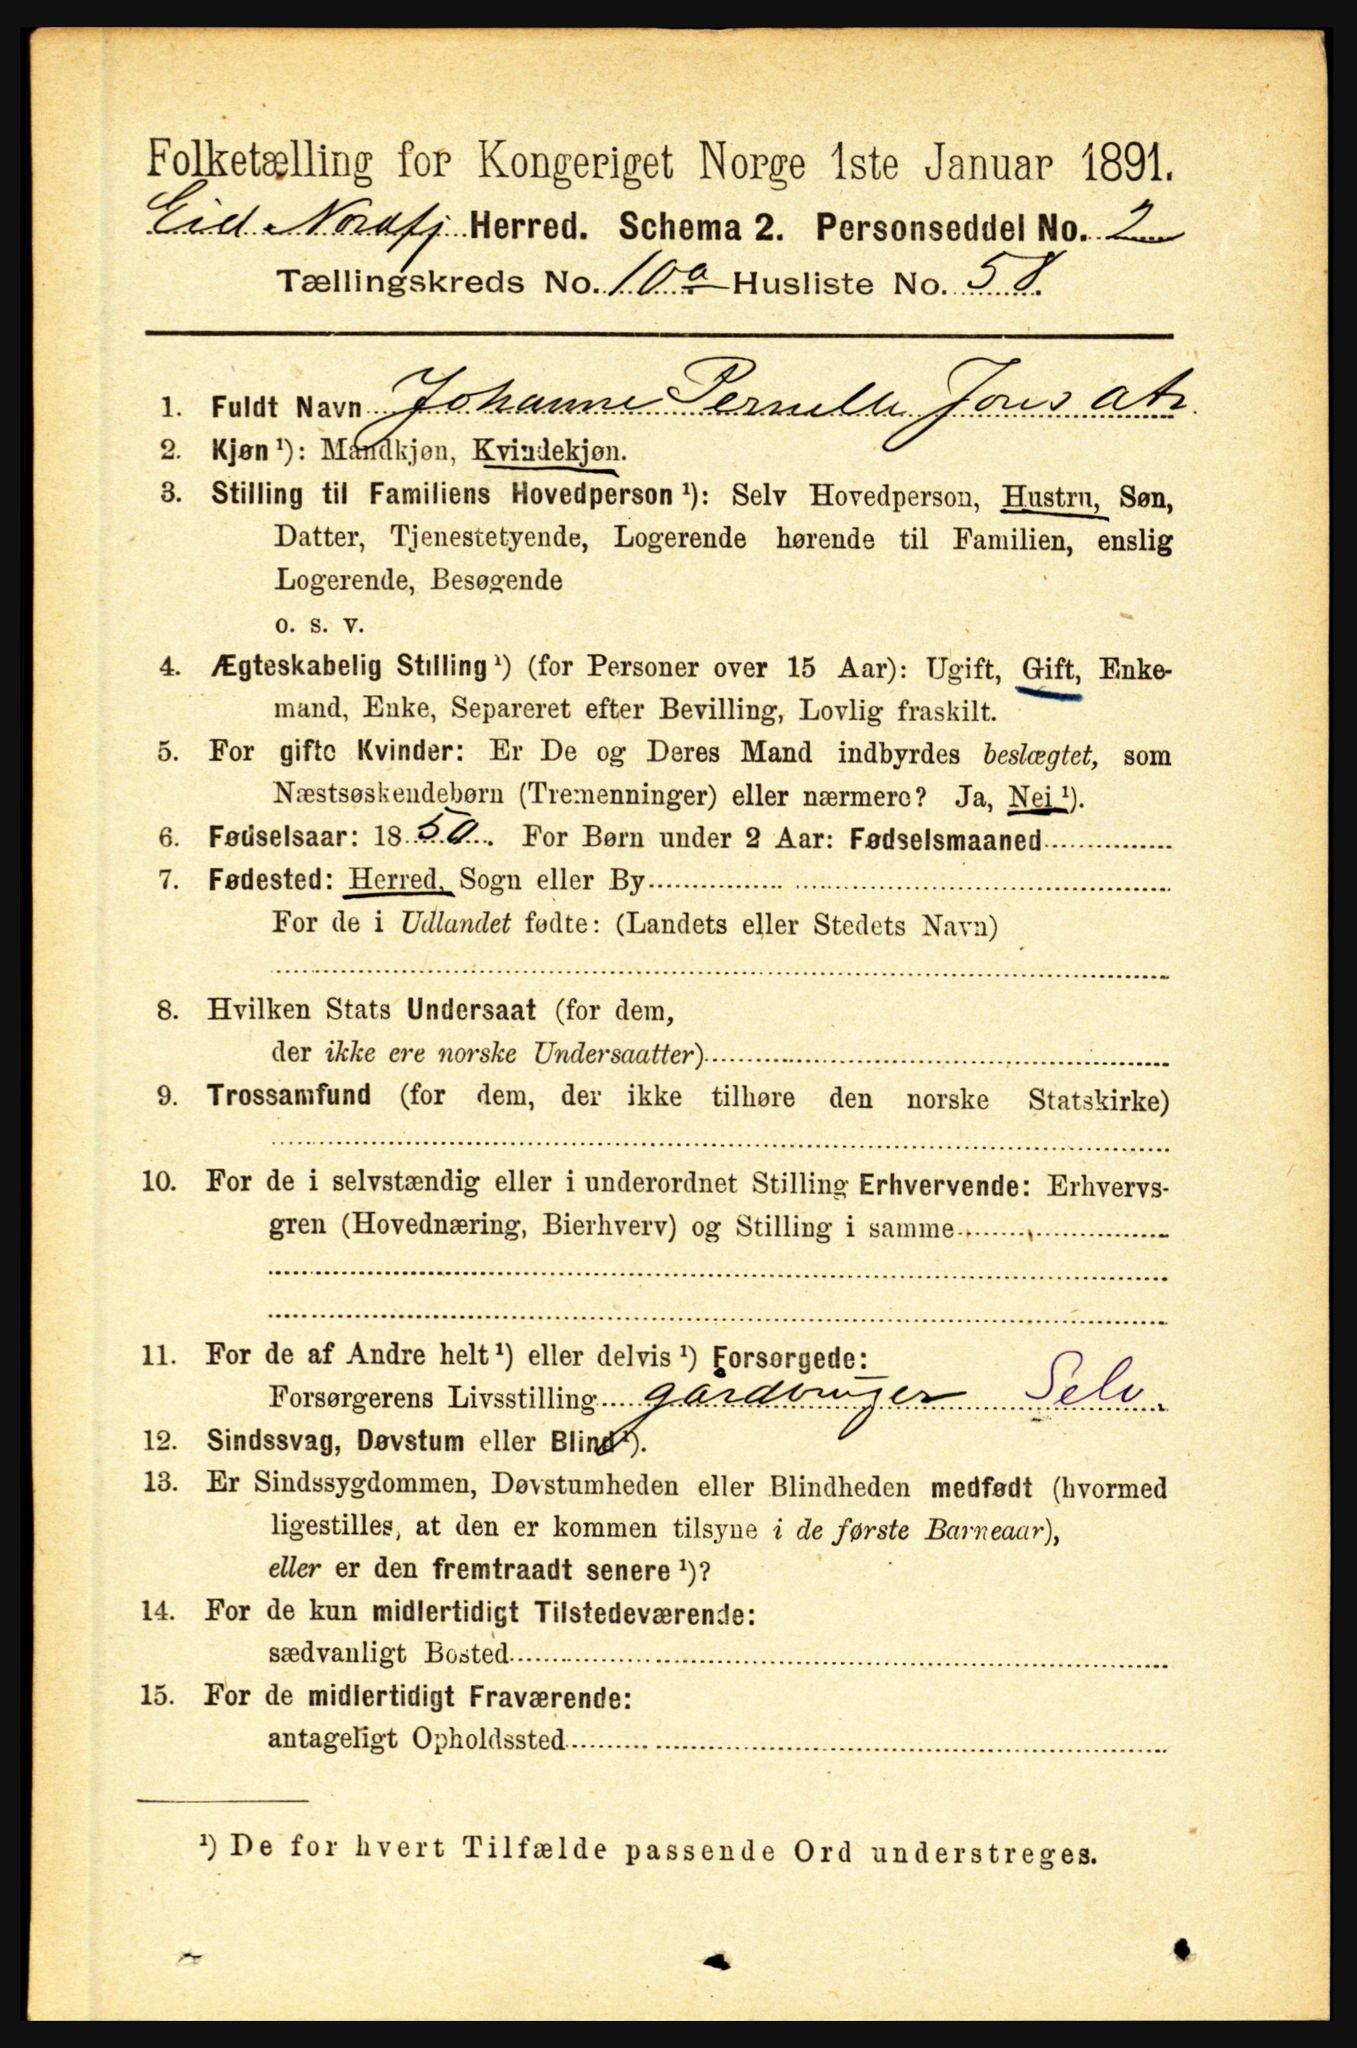 Folketælling for Kongeriget Norge 1ste Januar 1891.
Eid Nordfj. Herred. Schema 2. Personseddel No. 2
Tællingskreds No. 10a Husliste No. 58.
1. Fuldt Navn Johanne Pernille Jonsdtr.
2. Kjøn ¹): Mandkjøn, Kvindekjøn.
3. Stilling til Familiens Hovedperson ¹): Selv Hovedperson, Hustru, Søn,
Datter, Tjenestetyende, Logerende hørende til Familien, enslig
Logerende, Besøgende
o. s. v.
4. Ægteskabelig Stilling ¹) (for Personer over 15 Aar): Ugift, Gift, Enke-
mand, Enke, Separeret efter Bevilling, Lovlig fraskilt.
5. For gifte Kvinder: Er De og Deres Mand indbyrdes beslægtet, som
Næstsøskendebørn (Tremenninger) eller nærmere? Ja, Nei ¹).
6. Fødselsaar: 1850. For Børn under 2 Aar: Fødselsmaaned
7. Fødested: Herred, Sogn eller By
For de i Udlandet fødte: (Landets eller Stedets Navn)
8. Hvilken Stats Undersaat (for dem,
der ikke ere norske Undersaatter)
9. Trossamfund (for dem, der ikke tilhøre den norske Statskirke)
10. For de i selvstændig eller i underordnet Stilling Erhvervende: Erhvervs-
gren (Hovednæring, Bierhverv) og Stilling i samme
11. For de af Andre helt ¹) eller delvis ¹) Forsørgede:
Forsørgerens Livsstilling gårdbruger Selv.
12. Sindssvag, Døvstum eller Blind ¹).
13. Er Sindssygdommen, Døvstumheden eller Blindheden medfødt (hvormed
ligestilles, at den er kommen tilsyne i de første Barneaar),
eller er den fremtraadt senere ¹)?
14. For de kun midlertidigt Tilstedeværende:
sædvanligt Bosted
15. For de midlertidigt Fraværende:
antageligt Opholdssted
¹) De for hvert Tilfælde passende Ord understreges.